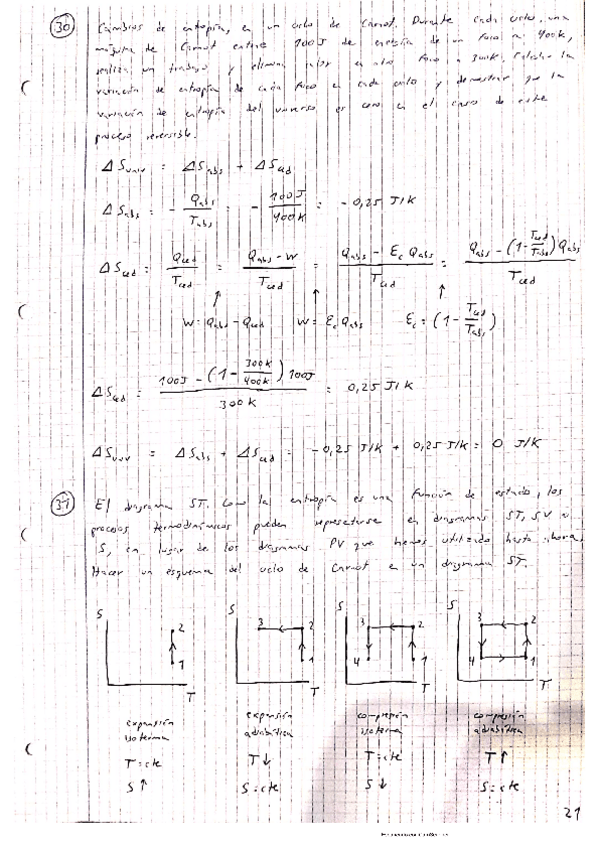 30 Cambios de entropía, en un ciclo de Carnot. Durante cada ciclo, una
máquina de Carnot extrae 100J de energía de un foco a 400k,
realiza un trabajo y elimina calor en otro foco a 300k. Calcular la
variación de entropía de cada foco en cada ciclo y demostrar que la
variación de entropía del universo es cero en el caso de este
proceso reversible.
ΔSuniv = ΔSabs + ΔSced
ΔSabs = - Qabs/Tabs = - 100J/400k = -0,25 J/K
ΔSced = Qced/Tced = (Qabs - W)/Tced = (Qabs - Ec Qabs)/Tced = (Qabs - (1 - Tced/Tabs) Qabs)/Tced
W = Qabs - Qced W = Ec Qabs Ec = (1 - Tced/Tabs)
ΔSced = (100J - (1 - 300k/400k) 100J)/300k = 0,25 J/K
ΔSuniv = ΔSabs + ΔSced = -0,25 J/K + 0,25 J/K = 0 J/K
31 El diagrama ST. Como la entropía es una función de estado, los
procesos termodinámicos pueden representarse en diagramas ST, SV o
S, en lugar de los diagramas PV que hemos utilizado hasta ahora.
Hacer un esquema del ciclo de Carnot en un diagrama ST.
S 2 1 T
S 3 2 1 T
S 3 2 4 1 T
S 3 2 4 1 T
expansión isoterma
T = cte
S ↑
expansión adiabática
T ↓
S = cte
compresión isoterma
T = cte
S ↓
compresión adiabática
T ↑
S = cte
21